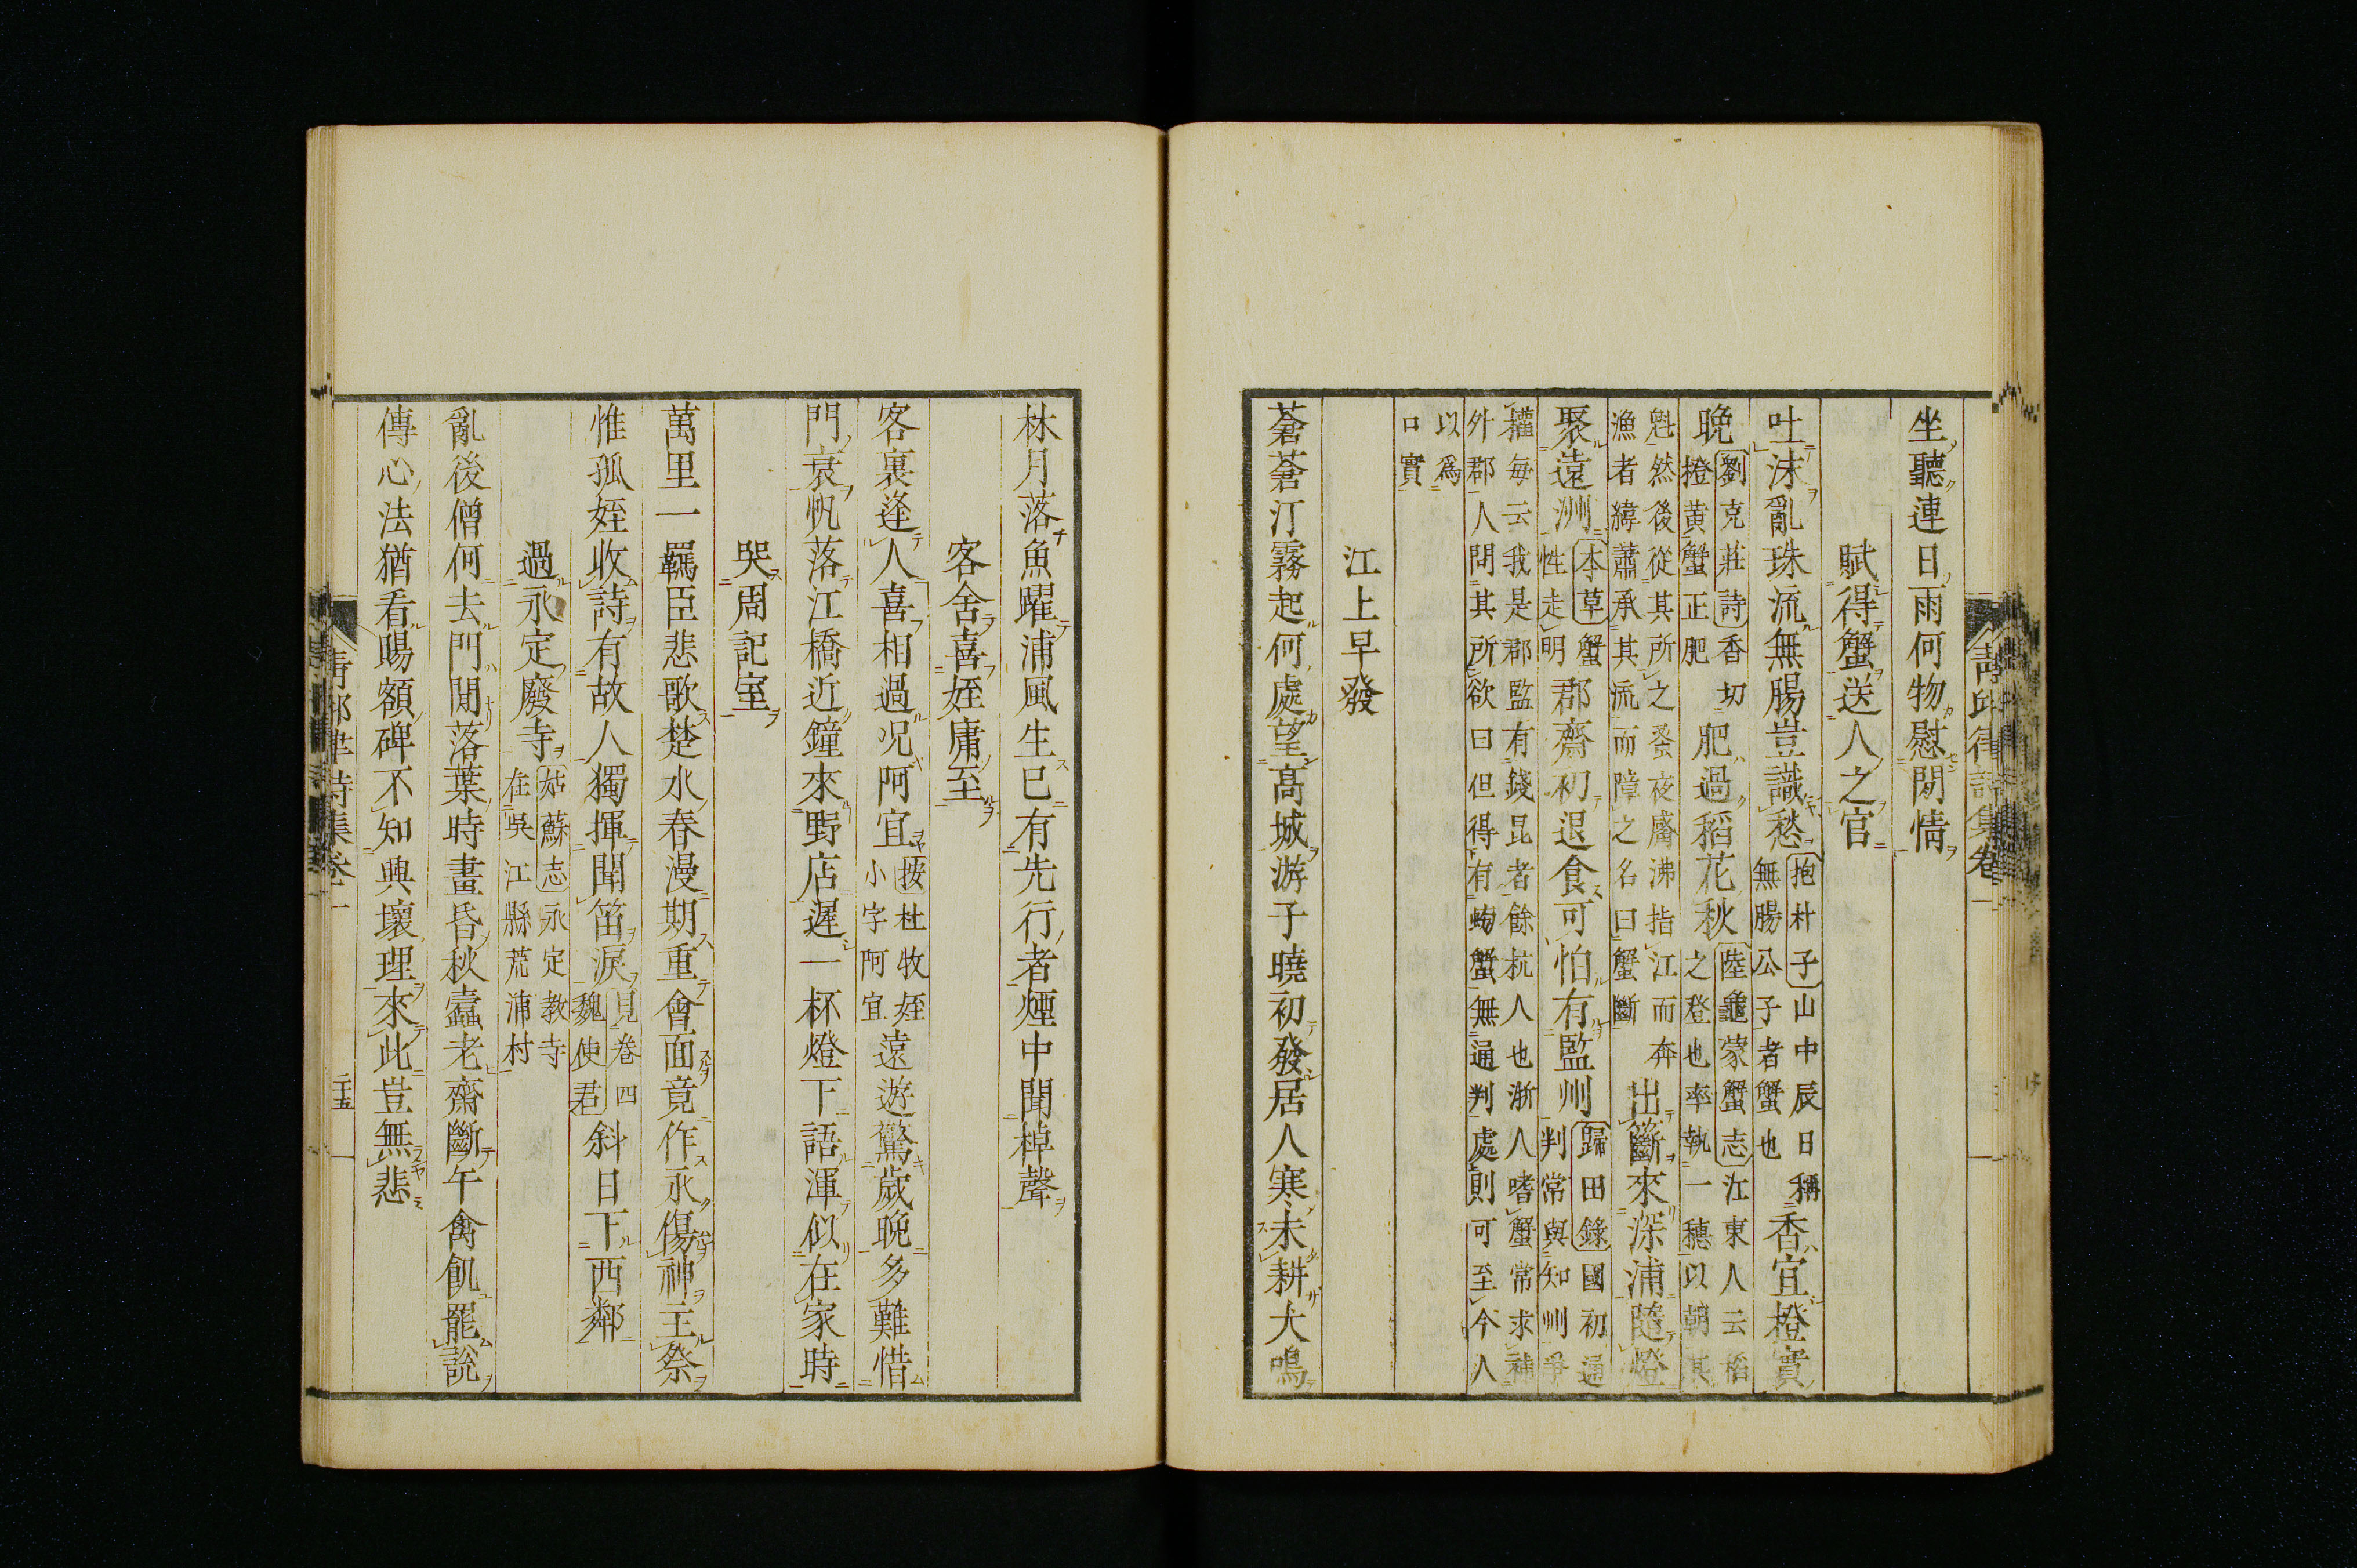 坐聽連日雨何物慰閉情
賦得蟹送人之官
吐沫亂珠流無腸豈識愁抱朴子山中辰日稱無腸公子者蟹也香宜橙實
晩劉克莊詩香切橙黄蟹正肥肥過稻花秋陸龜蒙蟹志江東人云稻之登也率執一穗以朝其
魁然後從其所之蚤夜觱沸指江而奔漁者緯蕭承其流而障之名曰蟹斷出籪來深浦隨燈
聚遠洲本草蟹性走明郡齋初退食可怕有監州歸田錄國初通判常與知州爭
權毎云我是郡監有錢昆者餘杭人也浙人嗜蟹常求補外郡人問其所欲曰但得有蟹無通判處則可至今人
以爲口實
江上早發
蒼蒼汀霧起何處望高城游子曉初發居人寒未耕犬鳴
林月落魚躍浦風生已有先行者煙中聞棹聲
客舍喜姪庸至
客裏逢人喜相過况阿宜按杜牧姪小字阿宜遠遊驚歲晩多難惜
門衰帆落江橋近鐘來野店遲一杯燈下語渾似在家時
哭周記室
萬里一羈臣悲歌楚水春漫期重會面竟作永傷神主祭
惟孤姪收詩有故人獨揮聞笛淚見巻四魏使君斜日下西鄰
過永定廢寺姑蘇志永定教寺在吳江縣荒浦村
亂後僧何去門閒落葉時畫昏秋蠧老齋斷午禽飢罷說
傳心法猶看賜額碑不知興壞理來此豈無悲
二十五